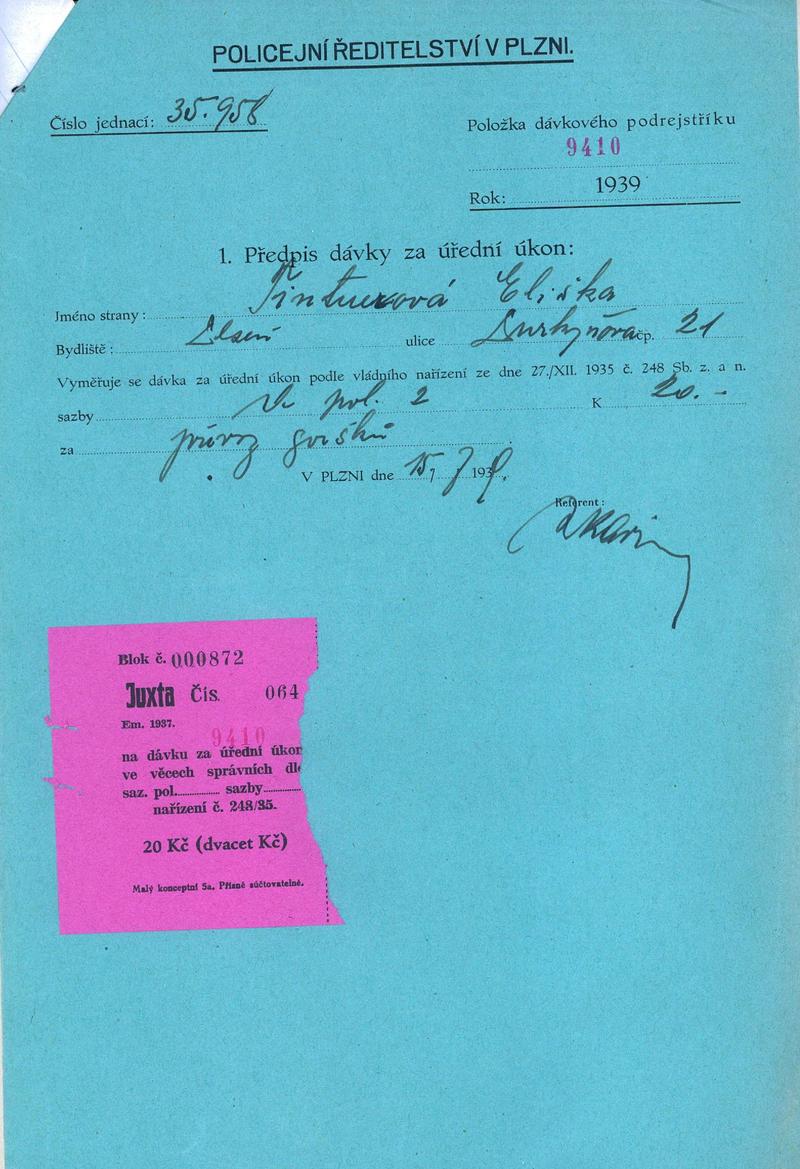 POLICEJNÍ ŘEDITELSTVÍ V PLZNI.
Číslo jednací: 35.958
Položka dávkového podrejstříku
9410
Rok: 1939
1. Předpis dávky za úřední úkon:
Jméno strany: Tintnerová Eliška
Bydliště: Plzeň ulice Purkyňova čp. 21
Vyměřuje se dávka za úřední úkon podle vládního nařízení ze dne 27./XII. 1935 č. 248 Sb. z. a n.
sazby pol. 2 K 20.-
za
V PLZNI dne 15/7 1939.
Referent:
Blok č. 000872
Juxta Čís. 064
Em. 1937.
9410
na dávku za úřední úkon
ve věcech správních dle
saz. pol. sazby
nařízení č. 248/35.
20 Kč (dvacet Kč)
Malý konceptní 5a. Přísně súčtovatelné.